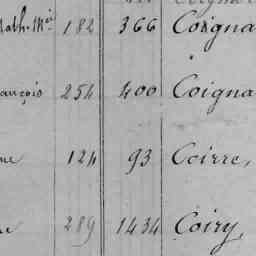 ath. Mie 182 366 Coigna
ançois 254 400 Coigna
ne 124 93 Coirre,
289 1434 Coiry,